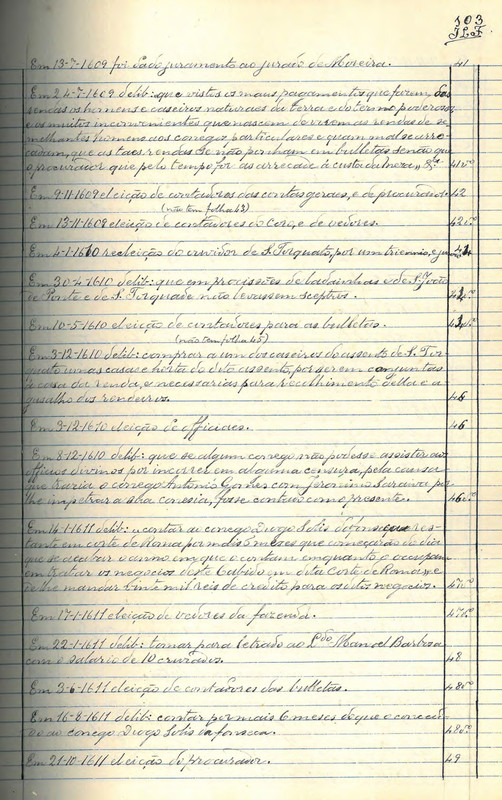 103
J.L.F.
Em 13-7-1609 foi dado juramento ao jurado de Moreira. 41
Em 24-7-1609 delib: que vistos os maus pagamentos que fazem, das
rendas os homens e caseiros naturaes da terra e do termo poderosos
e os muitos inconvenientes que nascem de virem as rendas de se-
melhantes homens aos conegos particulares e quam mal se arre-
cadam, que as taes rendas se não ponham em bulletas senão que
o procurador que pelo tempo fôr as arrecade à custa da meza, &ª 41vº
Em 9-11-1609 eleição de contadores das contas geraes, e de procurador. 42
(não tem folha 43)
Em 13-11-1609 eleição de contadores do Coro, e de vedores. 42vº
Em 4-1-1610 reeleição do ouvidor de S. Torquato, por um triennio, e 44
Em 30-4-1610 delib: que em procissões de ladainhas e de S. João
de Ponte e de S. Torquade não levassem sceptros. 44vº
Em 10-5-1610 eleição de contadores para as bulletas.
(não tem folha 45)
Em 3-12-1610 delib: comprar a um dos caseiros do assento de S. Tor-
quato umas casas e horta do dito assento, por serem conjuntas
á casa da renda, e necessarias para recolhimento della e a-
gasalho dos rendeiros. 46
Em 9-12-1610 eleição de officiaes. 46
Em 8-12-1610 delib: que se algum conego não podesse assistir aos
officios divinos por incorrer em alguma censura, pela causa
que trazia o conego Antonio Gomes com Jeronimo Saraiva por
lhe impetrar a sua conesia, fosse contado como presente. 46vº
Em 14-1-1611 delib: contar ao conego Diogo Solis da Fonseca res-
tante em corte de Roma por mais 6 meses que começarão do dia
que se acabar o anno em que o contam emquanto o occupam
em tratar os negocios deste Cabido em dita Corte de Roma; e
se lhe mandar mil reis de credito para os ditos negocios. 47vº
Em 17-1-1611 eleição de vedores da fazenda. 47vº
Em 22-1-1611 delib: tomar para letrado ao Ldo Manoel Barbosa
com o salario de 10 cruzados. 48
Em 3-6-1611 eleição de contadores das bulletas. 48vº
Em 16-8-1611 delib: contar por mais 6 meses do que o concedi-
do ao conego Diogo Solis da fonseca. 48vº
Em 21-10-1611 eleição do procurador. 49